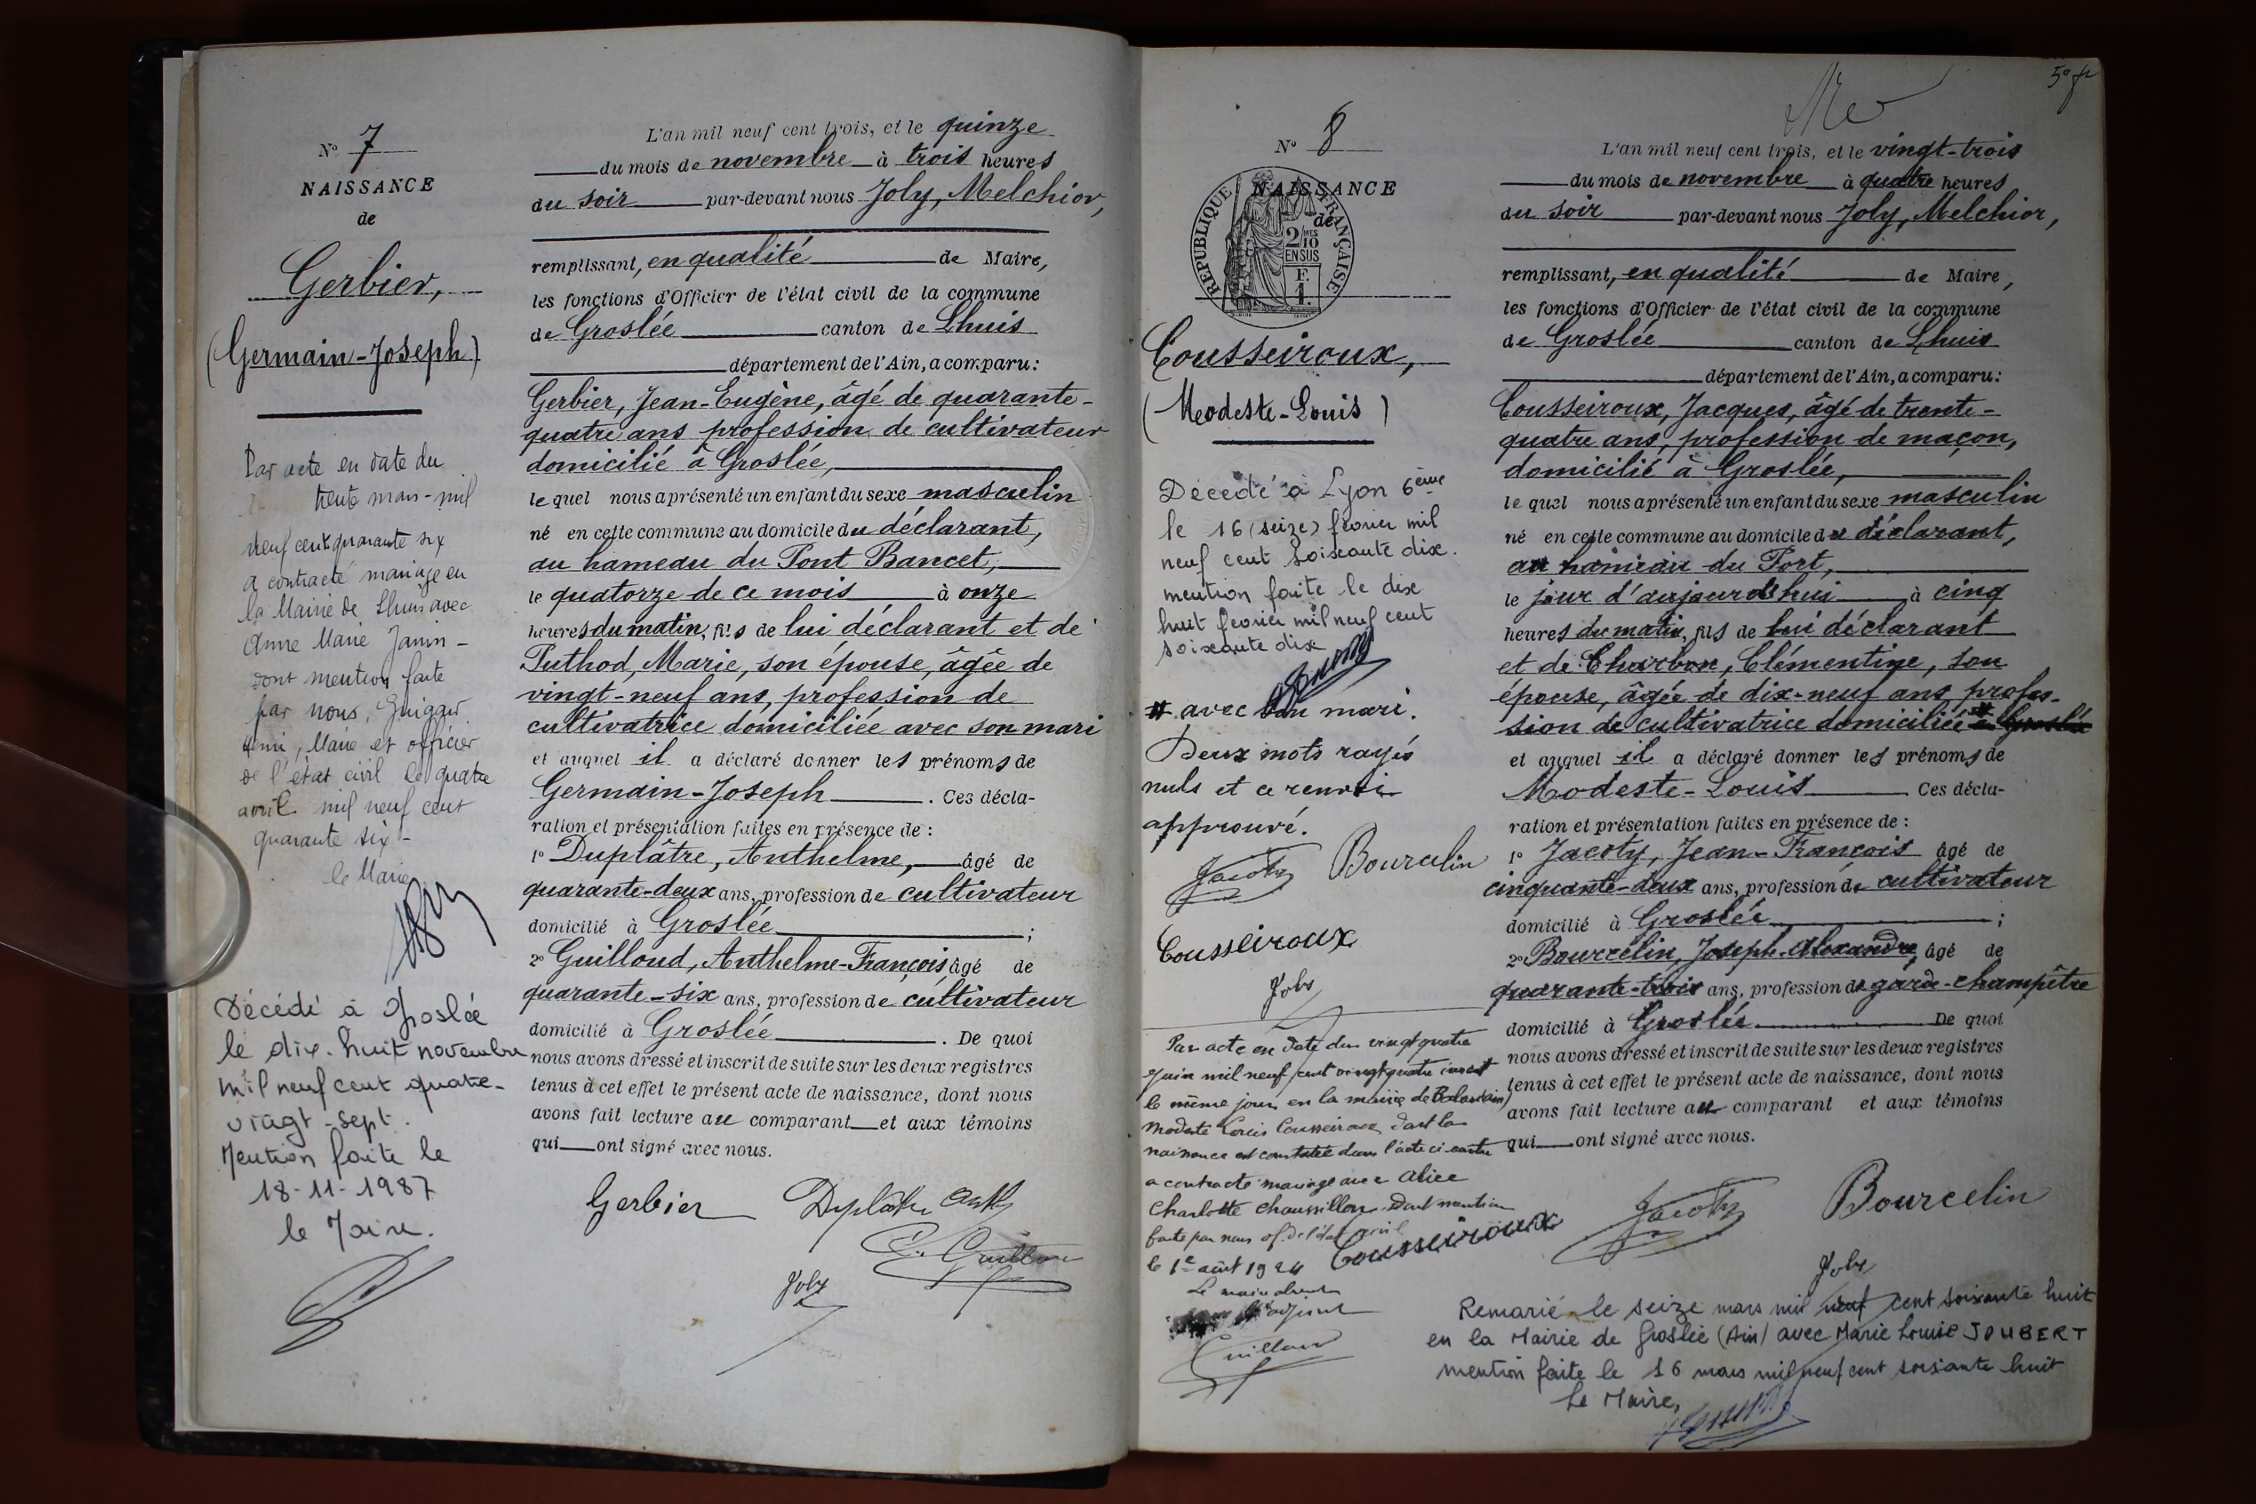 N° 7
NAISSANCE
de
Gerbier,
(Germain-Joseph)
Par acte en date du
trente mars - mil
neuf cent quarante six
a contracté mariage en
la Mairie de Lhuis avec
Anne Marie Janin -
dont mention faite
par nous,
Maire et officier
de l'état civil le quatre
avril mil neuf cent
quarante six -
le Maire
Décédé à Groslée
le dix-huit novembre
mil neuf cent quatre-
vingt-sept.
Mention faite le
18-11-1987
le Maire.
L'an mil neuf cent trois, et le quinze
du mois de novembre à trois heures
du soir par-devant nous Joly, Melchior,
remplissant, en qualité de Maire,
les fonctions d'Officier de l'état civil de la commune
de Groslée canton de Lhuis
département de l'Ain, a comparu:
Gerbier, Jean-Eugène, âgé de quarante-
quatre ans profession de cultivateur
domicilié à Groslée,
lequel nous a présenté un enfant du sexe masculin
né en cette commune au domicile du déclarant,
au hameau du Pont Bancet,
le quatorze de ce mois à onze
heures du matin, fils de lui déclarant et de
Puthod, Marie, son épouse, âgée de
vingt-neuf ans, profession de
cultivatrice domiciliée avec son mari
et auquel il a déclaré donner les prénoms de
Germain-Joseph. Ces décla-
ration et présentation faites en présence de :
1° Duplâtre, Anthelme, âgé de
quarante-deux ans, profession de cultivateur
domicilié à Groslée ;
2° Guilloud, Anthelme-François, âgé de
quarante-six ans, profession de cultivateur
domicilié à Groslée. De quoi
nous avons dressé et inscrit de suite sur les deux registres
tenus à cet effet le présent acte de naissance, dont nous
avons fait lecture au comparant et aux témoins
qui ont signé avec nous.
Gerbier Duplâtre Anth
Guilloud
Joly
5e f
N° 8
NAISSANCE
de
REPUBLIQUE FRANÇAISE
2/10 MES
EN SUS
F.
1.
Cousseiroux,
(Modeste-Louis)
Décédé à Lyon 6ème
le 16 (seize) février mil
neuf cent soixante dix.
mention faite le dix
huit février mil neuf cent
soixante dix
# avec son mari.
Deux mots rayés
nuls et ce renvoi
approuvé.
Jacoty Bourcelin
Cousseiroux
Joly
Par acte en date du vingt quatre
juin mil neuf cent vingt quatre inscrit
le même jour en la mairie de
Modeste Louis Cousseiroux dont la
naissance est constatée dans l'acte ci-contre
a contracté mariage avec Alice
Charlotte Chaussillon. Dont mention
faite par nous of. de l'état civil
le 1er août 1924
Le maire absent
adjoint
Guilloud
L'an mil neuf cent trois, et le vingt-trois
du mois de novembre à quatre heures
du soir par-devant nous Joly, Melchior,
remplissant, en qualité de Maire,
les fonctions d'Officier de l'état civil de la commune
de Groslée canton de Lhuis
département de l'Ain, a comparu:
Cousseiroux, Jacques, âgé de trente-
quatre ans, profession de maçon,
domicilié à Groslée,
lequel nous a présenté un enfant du sexe masculin
né en cette commune au domicile du déclarant,
au hameau du Port,
le jour d'aujourd'hui à cinq
heures du matin, fils de lui déclarant
et de Charbon, Clémentine, son
épouse, âgée de dix-neuf ans, profes-
sion de cultivatrice domiciliée # à Groslée
et auquel il a déclaré donner les prénoms de
Modeste-Louis Ces décla-
ration et présentation faites en présence de :
1° Jacoty, Jean-François âgé de
cinquante-deux ans, profession de cultivateur
domicilié à Groslée ;
2° Bourcelin, Joseph-Alexandre, âgé de
quarante-trois ans, profession de garde-champêtre
domicilié à Groslée De quoi
nous avons dressé et inscrit de suite sur les deux registres
tenus à cet effet le présent acte de naissance, dont nous
avons fait lecture au comparant et aux témoins
qui ont signé avec nous.
Cousseiroux Jacoty Bourcelin
Joly
Remarié le seize mars mil neuf cent soixante huit
en la Mairie de Groslée (Ain) avec Marie Louise JOUBERT
mention faite le 16 mars mil neuf cent soixante huit
Le Maire,